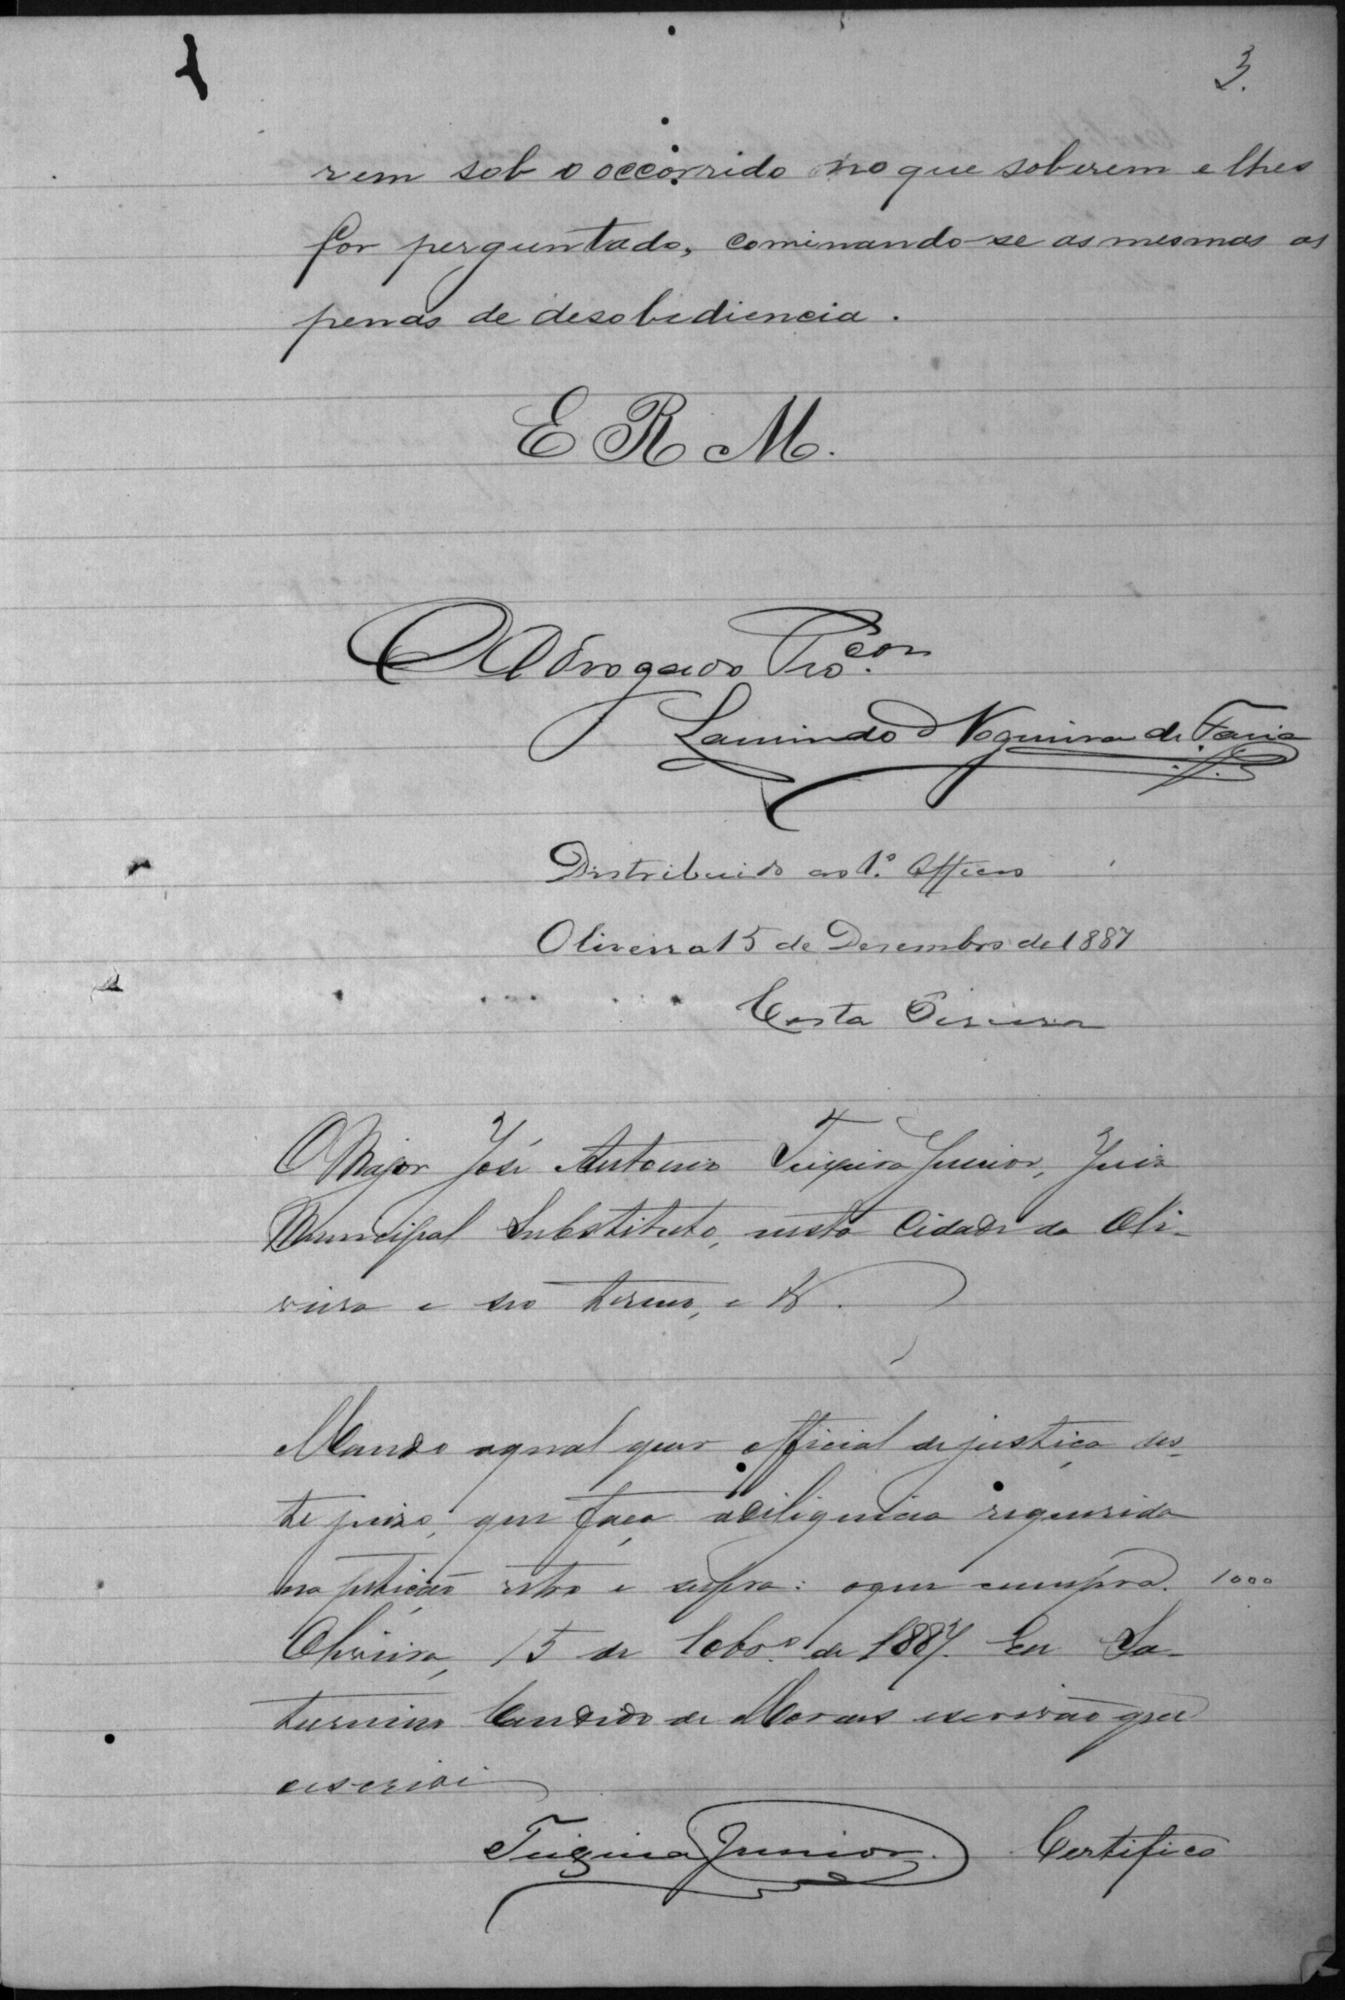 3.
rem sob o occorrido no que soberem e lhes
for perguntado, cominando-se as mesmas as
penas de desobediencia.
E R M.
O Advogado Pro.cor
Laurindo Nogueira de Faria
Distribuido ao 1.o Officio
Oliveira 15 de Desembro de 1887
Costa Pereira
O Major José Antonio Teixeira Junior, Juiz
Municipal Substituto, nesta Cidade da Oli-
veira e seo termo, e
Mando a qual quer official de justiça des-
te juizo, que faça a diligencia requerida
na petição retro e supra: o que cumpra. 1000
Oliveira, 15 de 10bro. de 1887. Eu Sa-
turnino Candido de Moraes escrivão que
escrivi
Teixeira Junior. Certifico